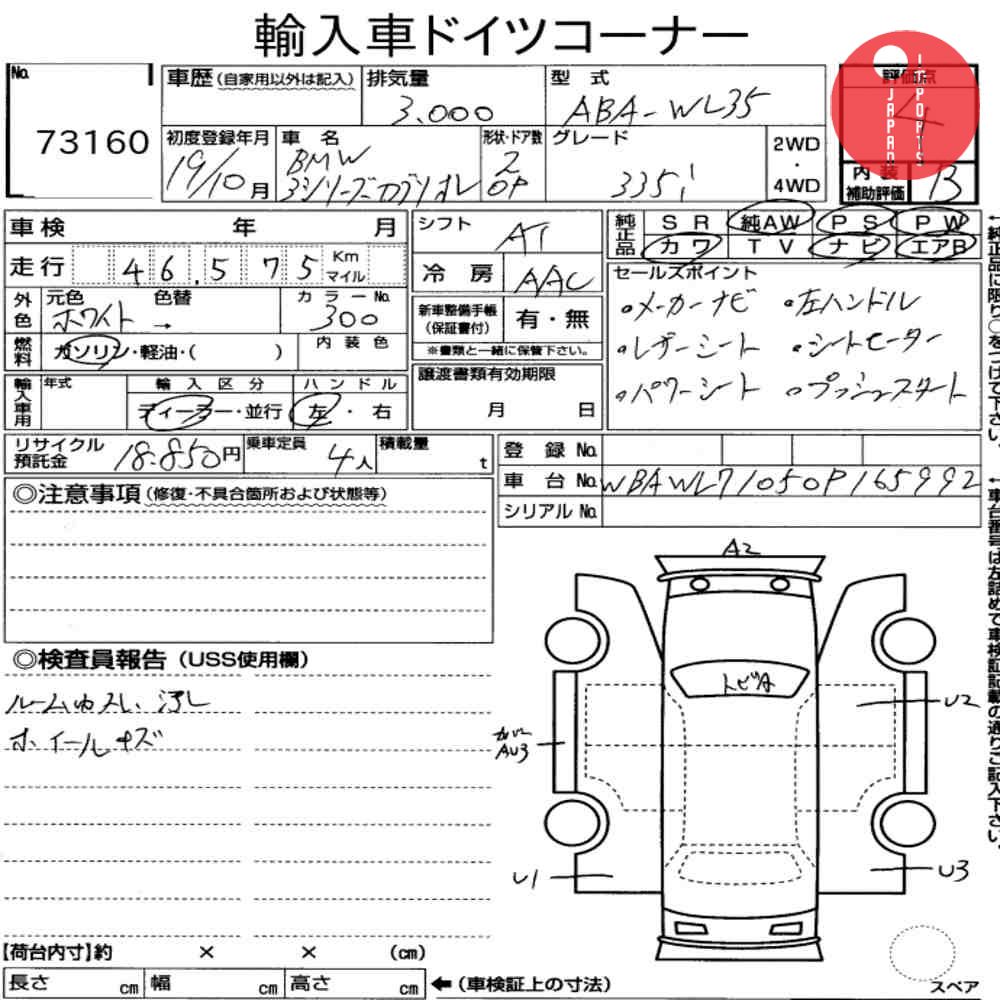 輸入車ドイツコーナー
No. 73160
車歴 (自家用以外は記入)
排気量 3.000
型式 ABA-WL35
評価点 4
JAPAN IMPORTS
初度登録年月 19/10月
車名 BMW 3シリーズカブリオレ
形状・ドア数 2 OP
グレード 335i
2WD・4WD
内装補助評価 B
車検 年 月
シフト AT
純正品 SR 純AW PS PW
カワ TV ナビ エアB
走行 46,575 Km マイル
冷房 AAC
セールスポイント
。メーカーナビ 。左ハンドル
。レザーシート 。シートヒーター
。パワーシート 。プッシュスタート
外色 元色 ホワイト 色替 → カラーNo. 300
新車整備手帳(保証書付) 有・無
※書類と一緒に保管下さい。
燃料 ガソリン・軽油・( ) 内装色
譲渡書類有効期限 月 日
輸入車用 年式 輸入区分 ハンドル
ディーラー・並行 左・右
リサイクル預託金 18.850円
乗車定員 4人
積載量 t
登録No.
車台No. WBAWL71050P165992
シリアルNo.
←純正品に限り○をつけて下さい。
←車台番号は左詰めで車検証記載の通りご記入下さい。
◎注意事項(修復・不具合箇所および状態等)
◎検査員報告(USS使用欄)
ルーム内スレ、汚レ
ホイールキズ
A2
トビA
U2
カバー
AU3
U1
U3
【荷台内寸】約 × × (cm)
長さ cm 幅 cm 高さ cm ←(車検証上の寸法)
スペア